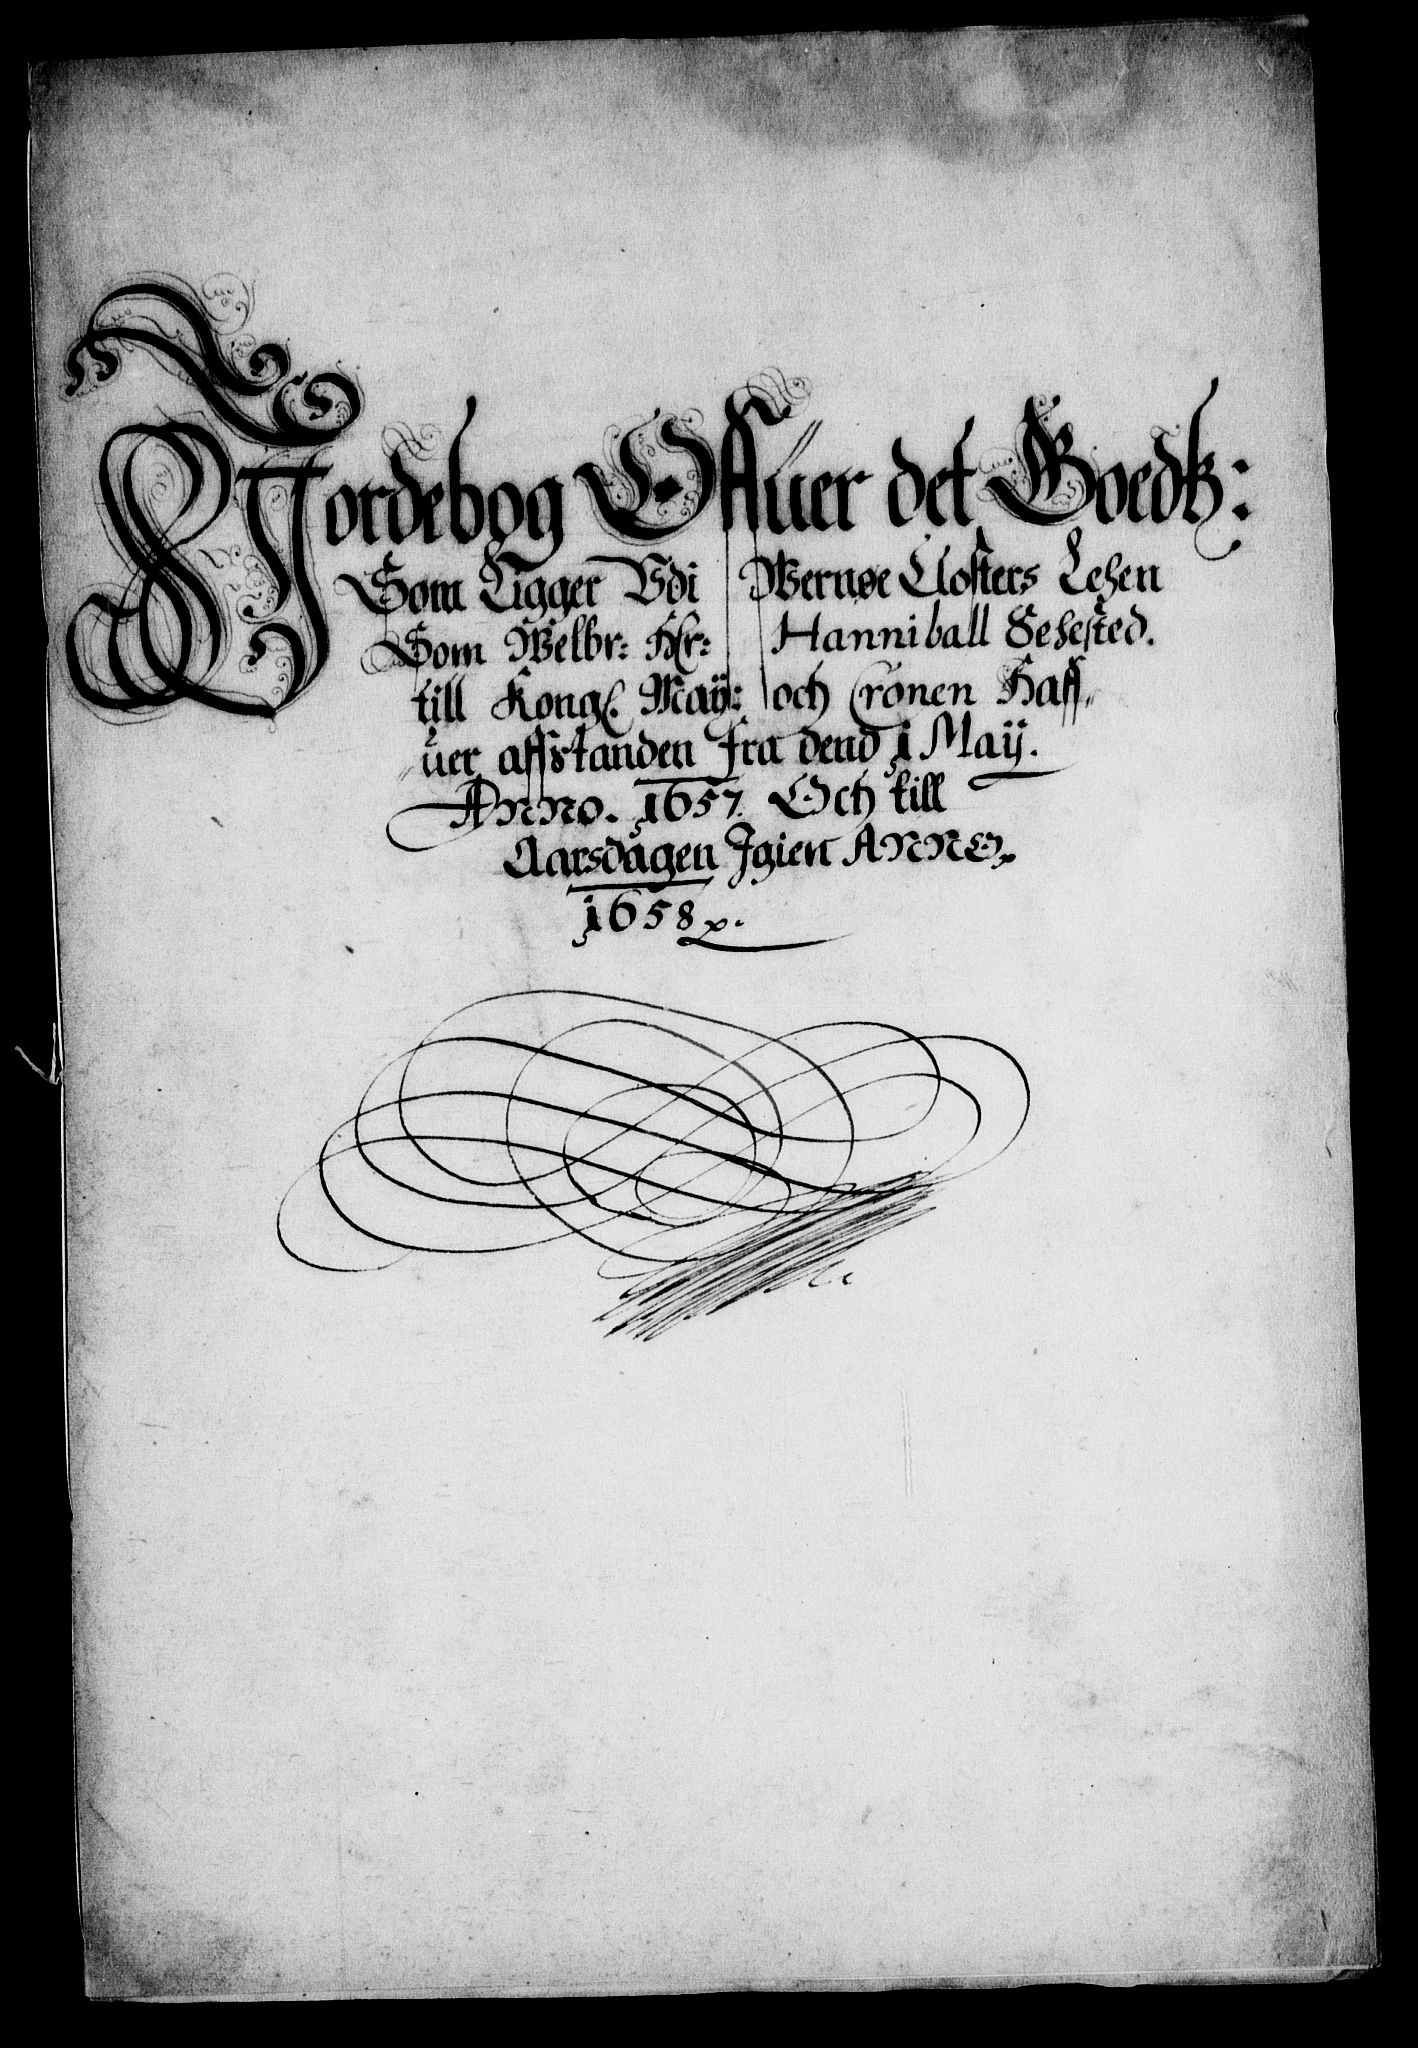 Jordebog Offuer det Goedtz:
Som Ligger Vdi Wernøe Closters Lehen
Som Welbr: Hr: Hanniball Sehested.
till Kongl. Maÿ: och Cronen Haff„
„uer affstanden fra dend 1 Maÿ.
Anno. 1657. Och till
Aarsdagen Igien Anno.
1658